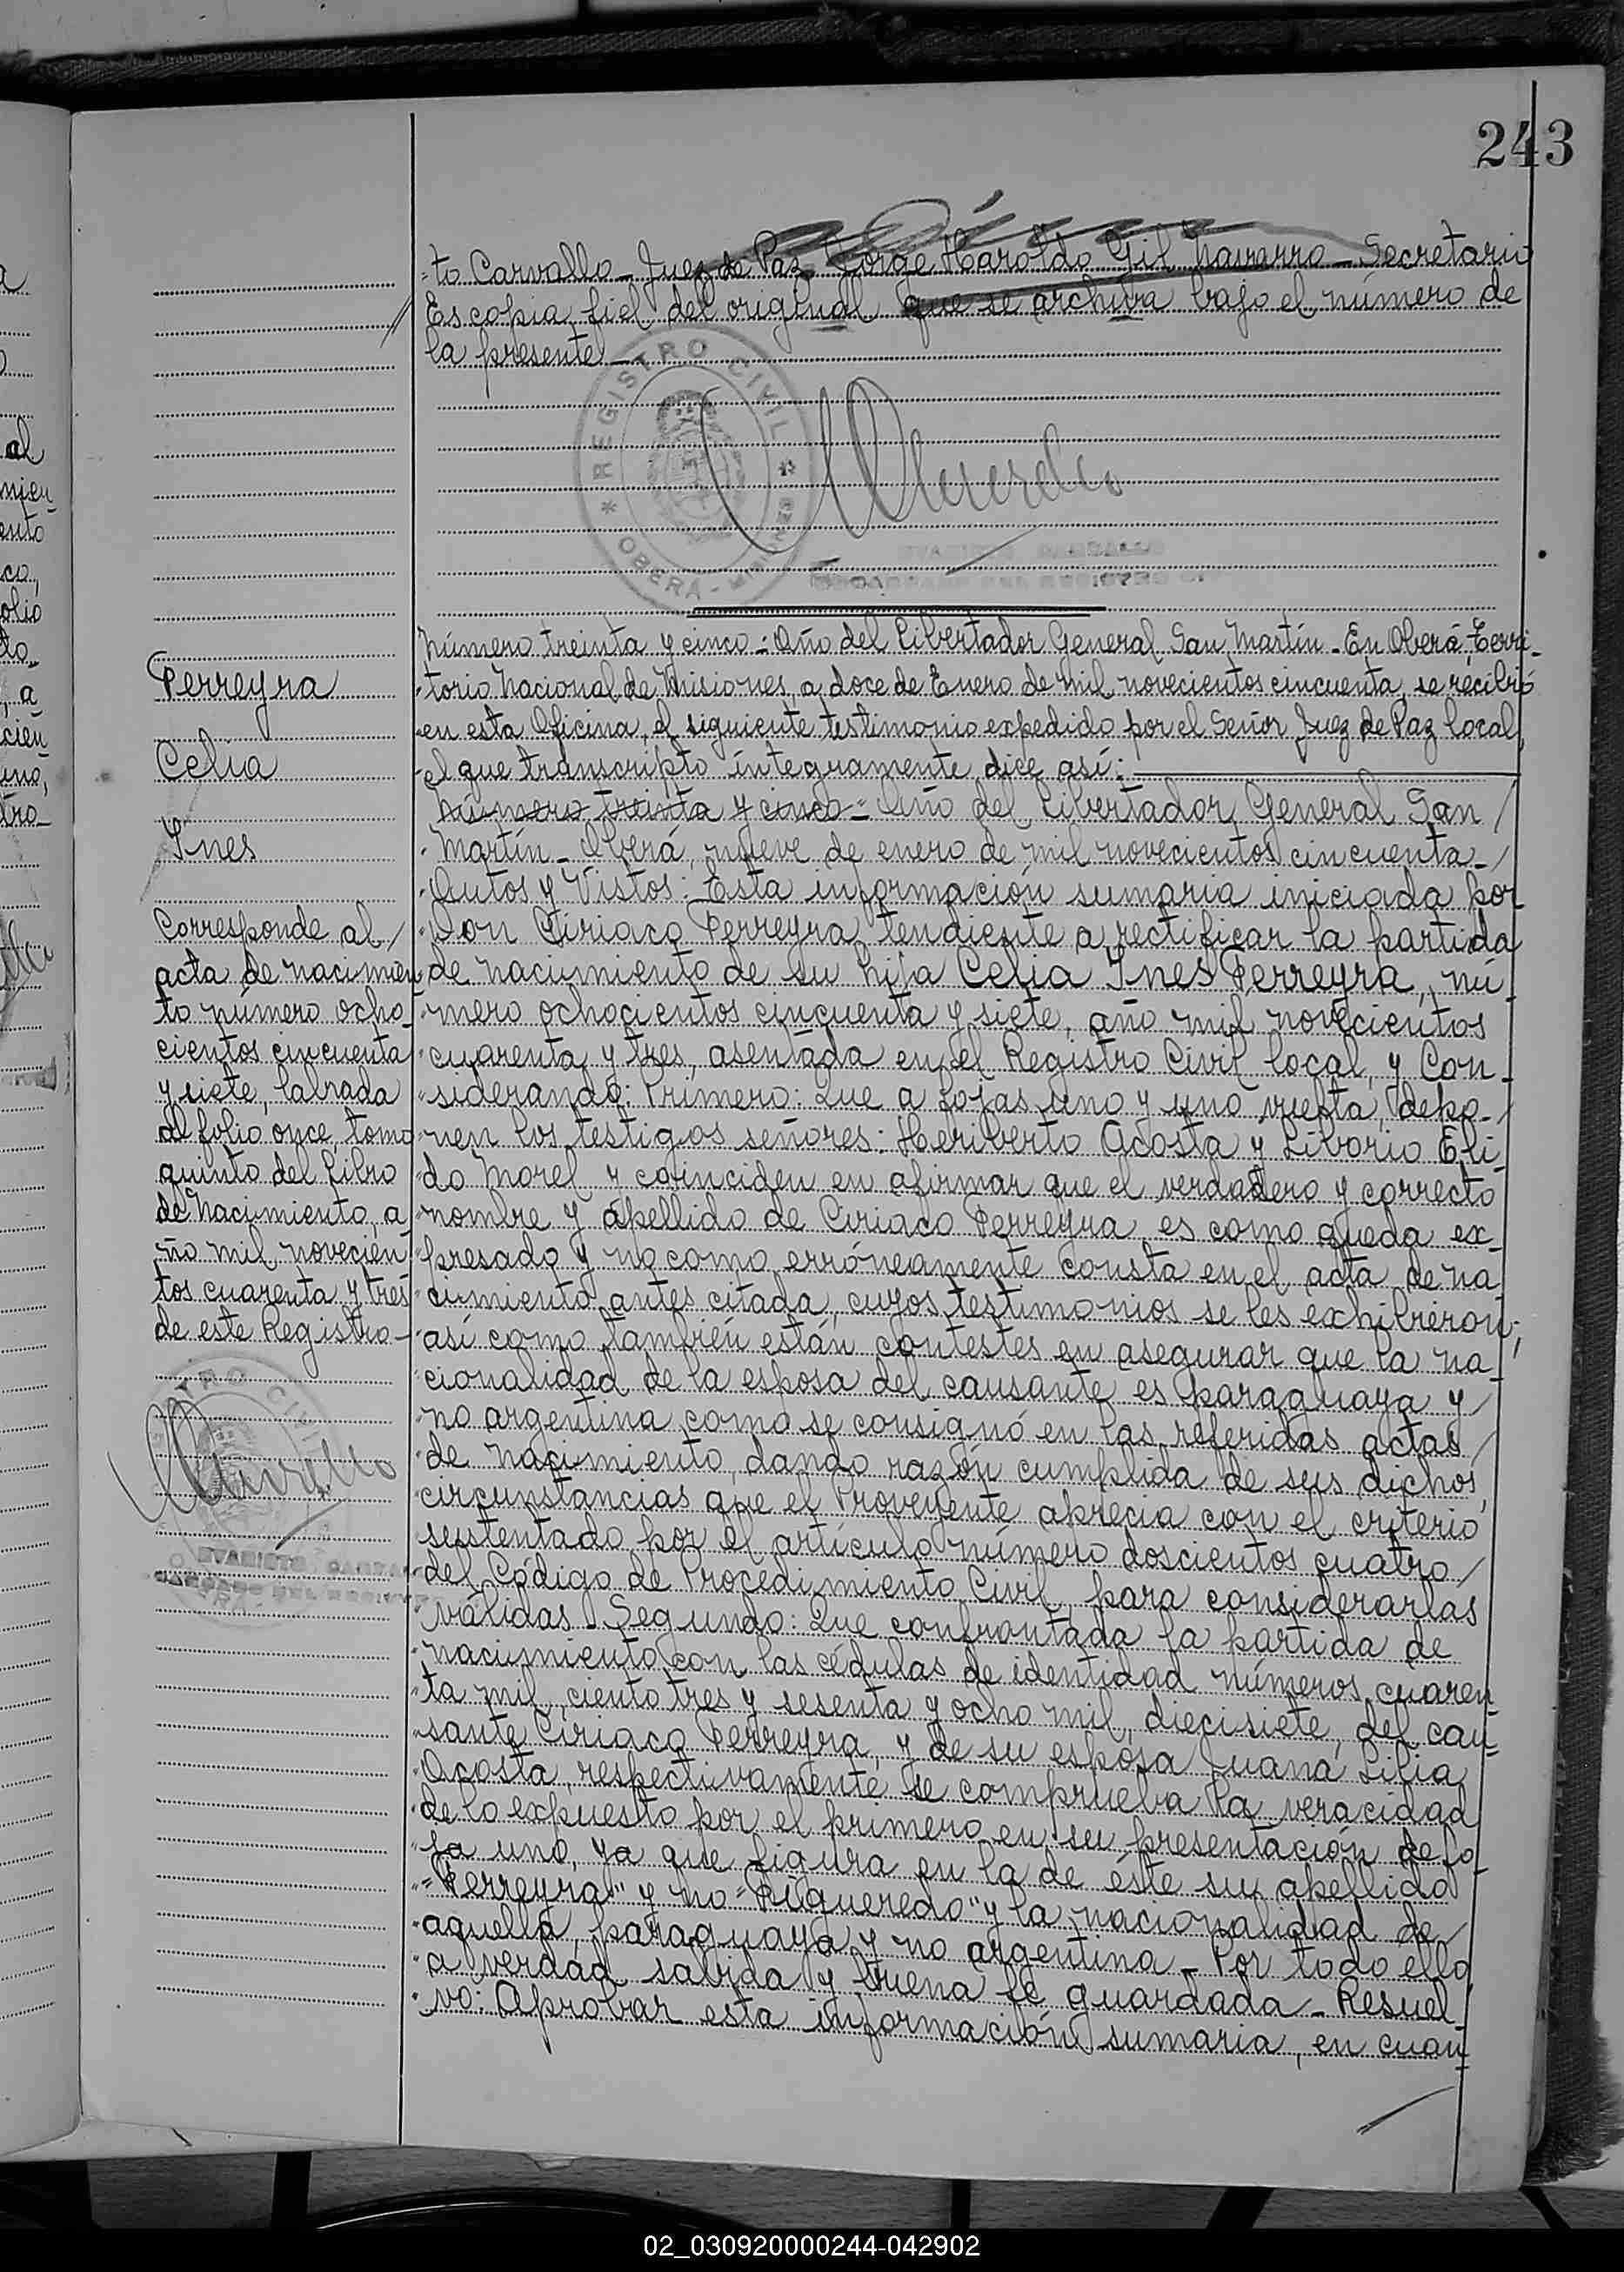 243
to Carvallo - Juez de Paz Jorge Haroldo Gil Navarro - Secretario
Es copia fiel del original que se archiva bajo el número de
la presente -
REGISTRO CIVIL
OBERÁ - MISIONES
EVARISTO CARBALLO
ENCARGADO DEL REGISTRO CIVIL
Número treinta y cinco - Año del Libertador General San Martín - En Oberá, Terri-
torio Nacional de Misiones, a doce de Enero de mil novecientos cincuenta, se recibió
en esta Oficina, el siguiente testimonio expedido por el Señor Juez de Paz local,
el que transcripto íntegramente dice así:
Número treinta y cinco = Año del Libertador General San /
Martín - Oberá, nueve de enero de mil novecientos cincuenta - /
Autos y Vistos: Esta información sumaria iniciada por
Don Ciriaco Ferreyra, tendiente a rectificar la partida
de nacimiento de su hija Celia Ines Ferreyra, nú-
mero ochocientos cincuenta y siete, año mil novecientos
cuarenta y tres, asentada en el Registro Civil local, y Con-
siderando: Primero: Que a fojas uno y uno vuelta, depo- /
nen los testigos señores: Heriberto Acosta y Liborio Eli-
do Morel y coinciden en afirmar que el verdadero y correcto
nombre y apellido de Ciriaco Ferreyra, es como queda ex-
presado y no como erróneamente consta en el acta de na-
cimiento antes citada, cuyos testimonios se les exhibieron;
así como también están contestes en asegurar que la na-
cionalidad de la esposa del causante es paraguaya y /
no argentina como se consignó en las referidas actas /
de nacimiento, dando razón cumplida de sus dichos,
circunstancias que el Proveyente aprecia con el criterio
sustentado por el artículo número doscientos cuatro /
del Código de Procedimiento Civil, para considerarlas
válidas - Segundo: Que confrontada la partida de
nacimiento con las cédulas de identidad números cuaren-
ta mil, ciento tres y sesenta y ocho mil, diecisiete, del cau-
sante Ciriaco Ferreyra, y de su esposa Juana Lilia
Acosta, respectivamente se comprueba la veracidad
de lo expuesto por el primero en su presentación de fo-
ja uno, ya que figura en la de éste su apellido
"Ferreyra" y no "Figueredo" y la nacionalidad de /
aquella, paraguaya y no argentina - Por todo ello,
a verdad sabida y buena fe guardada - Resuel-
vo: Aprobar esta información sumaria, en cuan-
Ferreyra
Celia
Ines
Corresponde al /
acta de nacimien-
to número ocho-
cientos cincuenta
y siete, labrada
al folio once, tomo
quinto del Libro
de Nacimiento, a-
ño mil novecien-
tos cuarenta y tres
de este Registro -
02_030920000244-042902